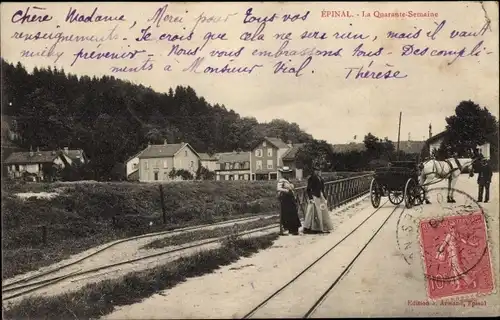 Chère Madame, Merci pour tous vos
ÉPINAL. - La Quarante-Semaine
renseignements. - Je crois que cela ne sera rien, mais il vaut
mieux prévenir - Nous vous embrassons tous - Des compli-
ments à Monsieur Vial.
Thérèse
Edition A. Armand, Epinal